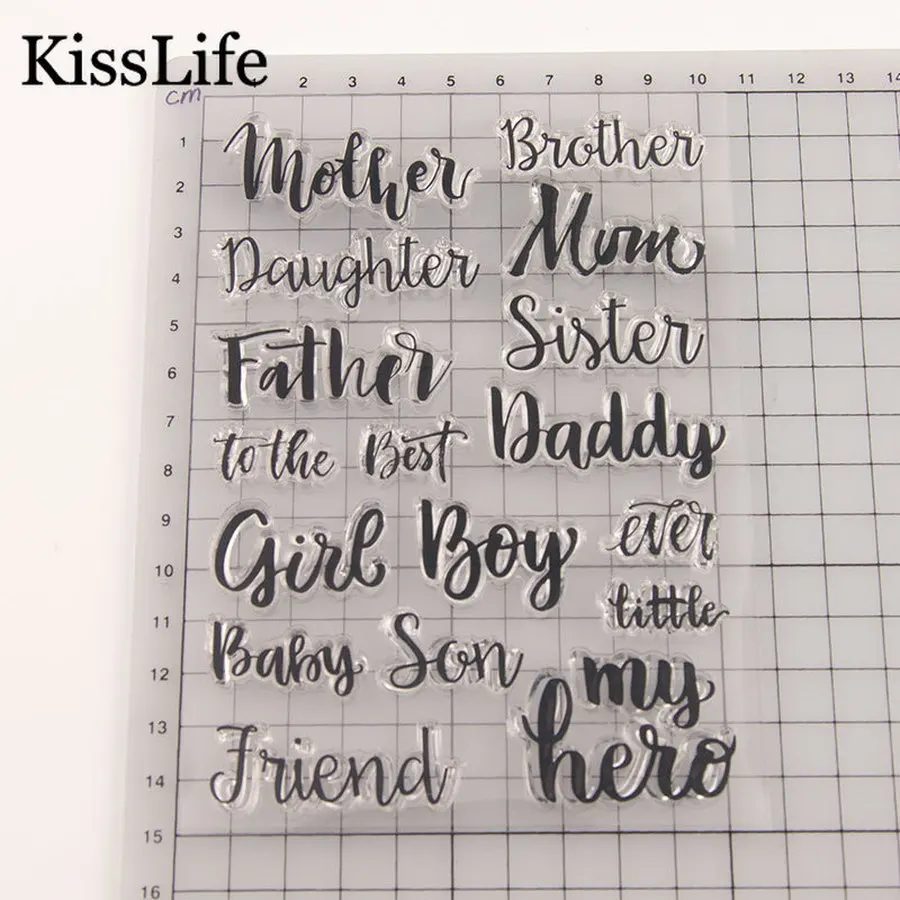 KissLife
cm
2 3 4 5 6 7 8 9 10 11 12 13 14
1
2
3
4
5
6
7
8
9
10
11
12
13
14
15
16
Mother
Brother
Daughter
Mum
Sister
Father
Daddy
to the Best
Girl Boy
ever
little
Baby Son
my
hero
Friend